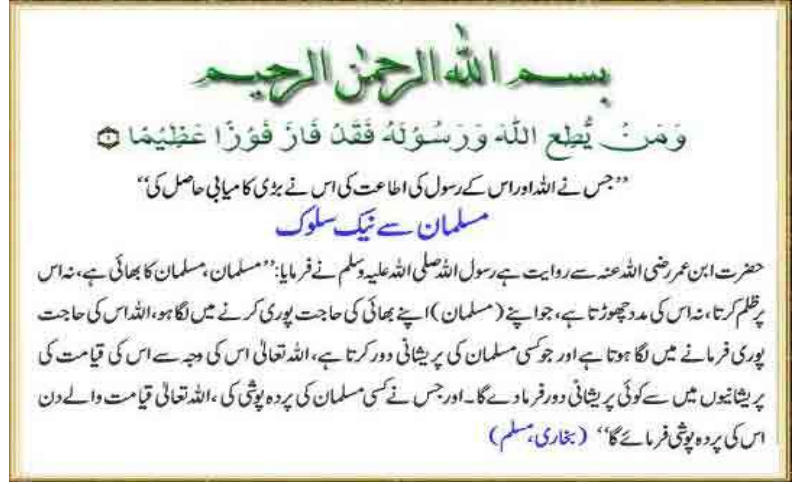 بسم الله الرحمٰن الرحيم
وَمَنْ يُّطِعِ اللّٰهَ وَرَسُوْلَهٗ فَقَدْ فَازَ فَوْزًا عَظِيْمًا
’’جس نے اللہ اور اس کے رسول کی اطاعت کی اس نے بڑی کامیابی حاصل کی‘‘
مسلمان سے نیک سلوک
حضرت ابن عمر رضی اللہ عنہ سے روایت ہے رسول اللہ صلی اللہ علیہ وسلم نے فرمایا: ’’مسلمان، مسلمان کا بھائی ہے، نہ اس
پر ظلم کرتا، نہ اس کی مدد چھوڑتا ہے، جو اپنے (مسلمان) اپنے بھائی کی حاجت پوری کرنے میں لگا ہو، اللہ اس کی حاجت
پوری فرمانے میں لگا ہوتا ہے اور جو کسی مسلمان کی پریشانی دور کرتا ہے، اللہ تعالٰی اس کی وجہ سے اس کی قیامت کی
پریشانیوں میں سے کوئی پریشانی دور فرمادے گا۔ اور جس نے کسی مسلمان کی پردہ پوشی کی، اللہ تعالٰی قیامت والے دن
اس کی پردہ پوشی فرمائے گا‘‘ (بخاری، مسلم)